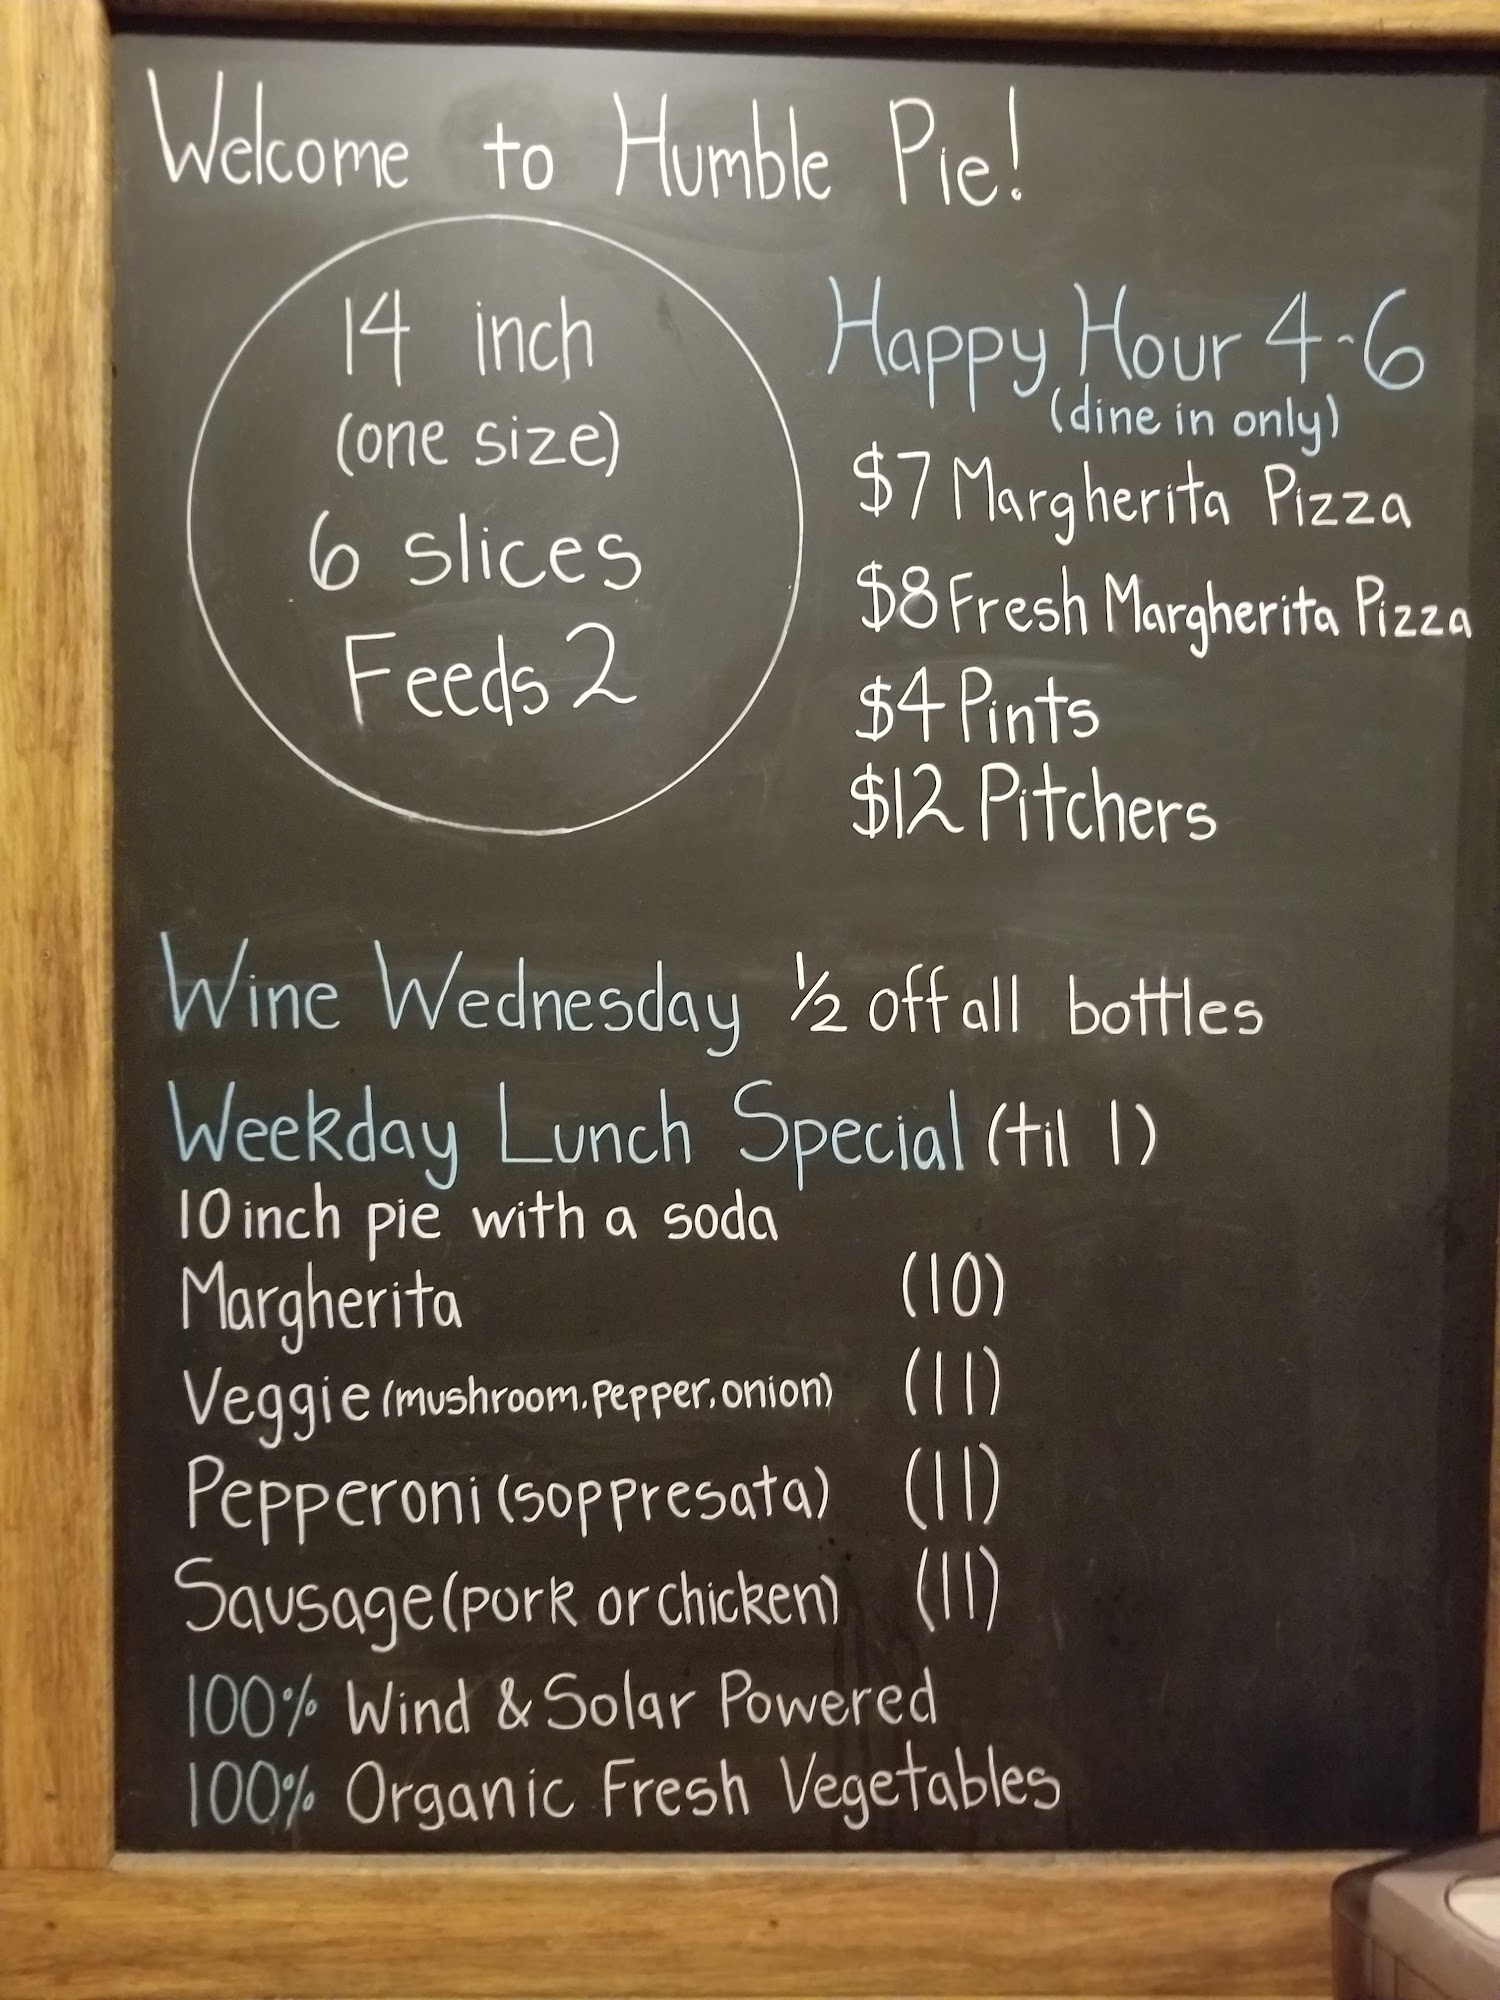 Welcome to Humble Pie!
14 inch
(one size)
6 slices
Feeds 2
Happy Hour 4-6
(dine in only)
$7 Margherita Pizza
$8 Fresh Margherita Pizza
$4 Pints
$12 Pitchers
Wine Wednesday ½ off all bottles
Weekday Lunch Special (til 1)
10 inch pie with a soda
Margherita (10)
Veggie (mushroom, pepper, onion) (11)
Pepperoni (soppresata) (11)
Sausage (pork or chicken) (11)
100% Wind & Solar Powered
100% Organic Fresh Vegetables